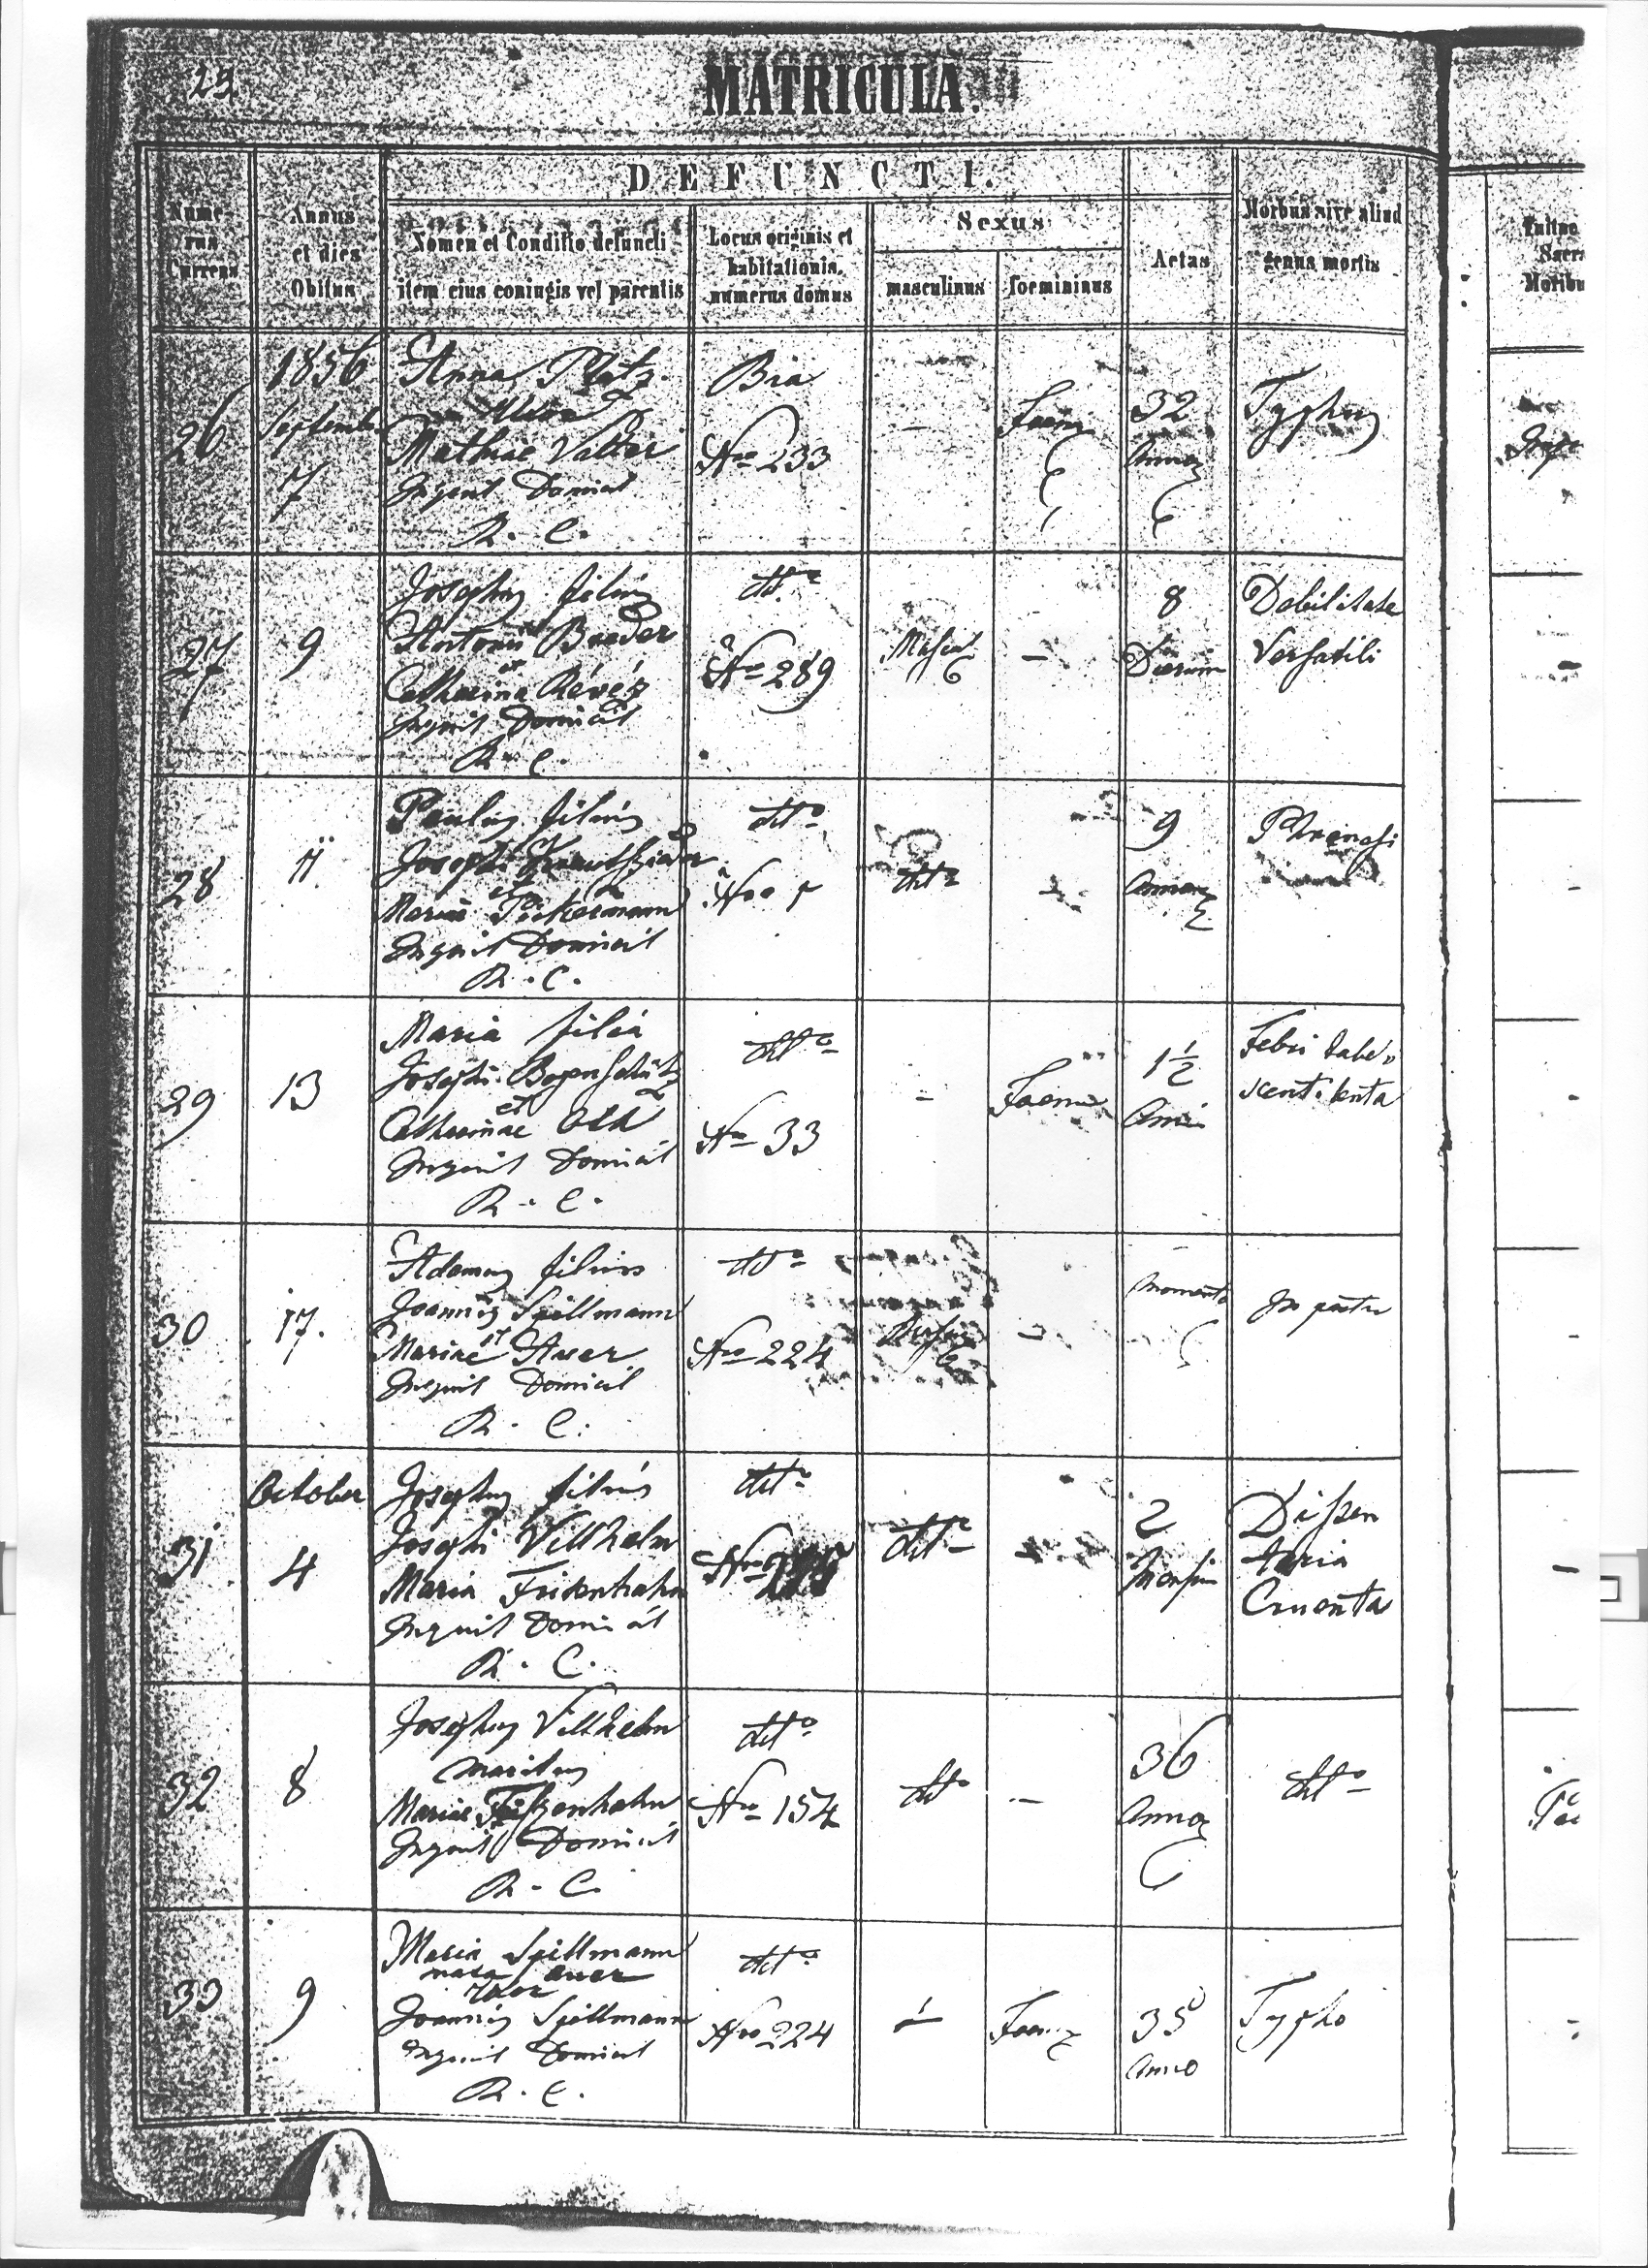 23
MATRICULA.
DEFUNCTI.
Nume-
rus
Currens
Annus
et dies
Obitus
Nomen et Conditio defuncti
item eius coniugis vel parentis
Locus originis et
habitationis,
numerus domus
Sexus
masculinus
foemininus
Aetas
Morbus sive aliud
genus mortis
26
1856
September
7
Anna
Mathiae
Inquil Domicil
R. C.
Bra
Nro 233
-
Foem
32
Annor
Typhus
27
9
Josephus filius
Antonii Bauder
et
Catharina Révész
Inquil Domicil
R. C.
dtto
Nro 289
Mascul
-
8
Dierum
Debilitate
Versatili
28
11.
Paulus filius
Josephi
et
Mariae
Inquil Domicil
R. C.
dtto
Nro
dtto
-
9
Annor
29
13
Maria filia
Josephi Bogenschütz
et
Catharinae
Inquil Domicil
R. C.
dtto
Nro 33
-
Foem
1½
Anni
Febri
lenta
30
17.
Adamus filius
Joannis Spillmann
et
Mariae Auer
Inquil Domicil
R. C.
dtto
Nro 224
-
momento
In partu
31
October
4
Josephus filius
Josephi Villhelm
Maria Frisenhahn
Inquil Domicil
R. C.
dtto
Nro
dtto
-
2
Mensium
Dissen
teria
Cruenta
32
8
Josephus Villhelm
maritus
Mariae
Inquil Domicil
R. C.
dtto
Nro 154
dtto
-
36
Annor
dtto
33
9
Maria Spillmann
nata Auer
Uxor
Joannis Spillmann
Inquil Domicil
R. C.
dtto
Nro 224
-
Foem
35
Anno
Typho